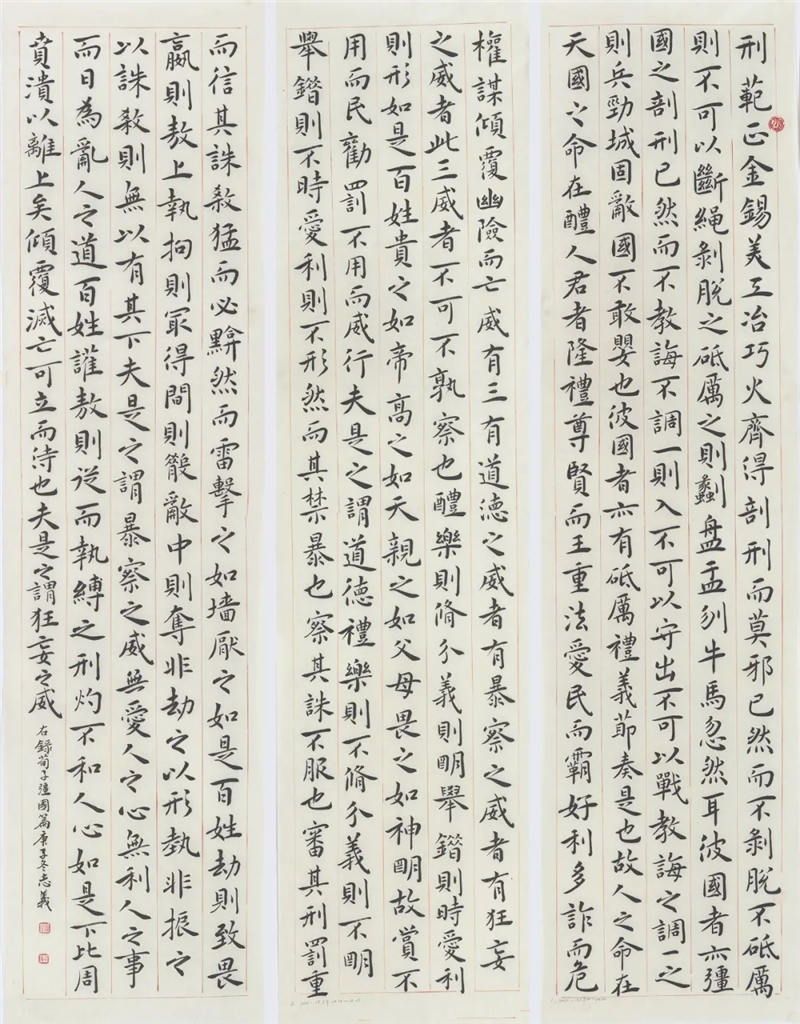 刑範正金錫美工冶巧火齊得剖刑而莫邪已然而不剝脫不砥厲
則不可以斷繩剝脫之砥厲之則劙盤盂刎牛馬忽然耳彼國者亦彊
國之剖刑已然而不教誨不調一則入不可以守出不可以戰教誨之調一之
則兵勁城固敵國不敢嬰也彼國者亦有砥厲禮義節奏是也故人之命在
天國之命在禮人君者隆禮尊賢而王重法愛民而霸好利多詐而危
權謀傾覆幽險而亡威有三有道德之威者有暴察之威者有狂妄
之威者此三威者不可不孰察也禮樂則脩分義則明舉錯則時愛利
則形如是百姓貴之如帝高之如天親之如父母畏之如神明故賞不
用而民勸罰不用而威行夫是之謂道德禮樂則不脩分義則不明
舉錯則不時愛利則不形然而其禁暴也察其誅不服也審其刑罰重
而信其誅殺猛而必黭然而雷擊之如墻厭之如是百姓劫則致畏
嬴則敖上執拘則冣得間則散敵中則奪非劫之以形埶非振之
以誅殺則無以有其下夫是之謂暴察之威無愛人之心無利人之事
而日為亂人之道百姓讙敖則從而執縛之刑灼不和人心如是下比周
賁潰以離上矣傾覆滅亡可立而待也夫是之謂狂妄之威
右錄荀子彊國篇庚子冬志義